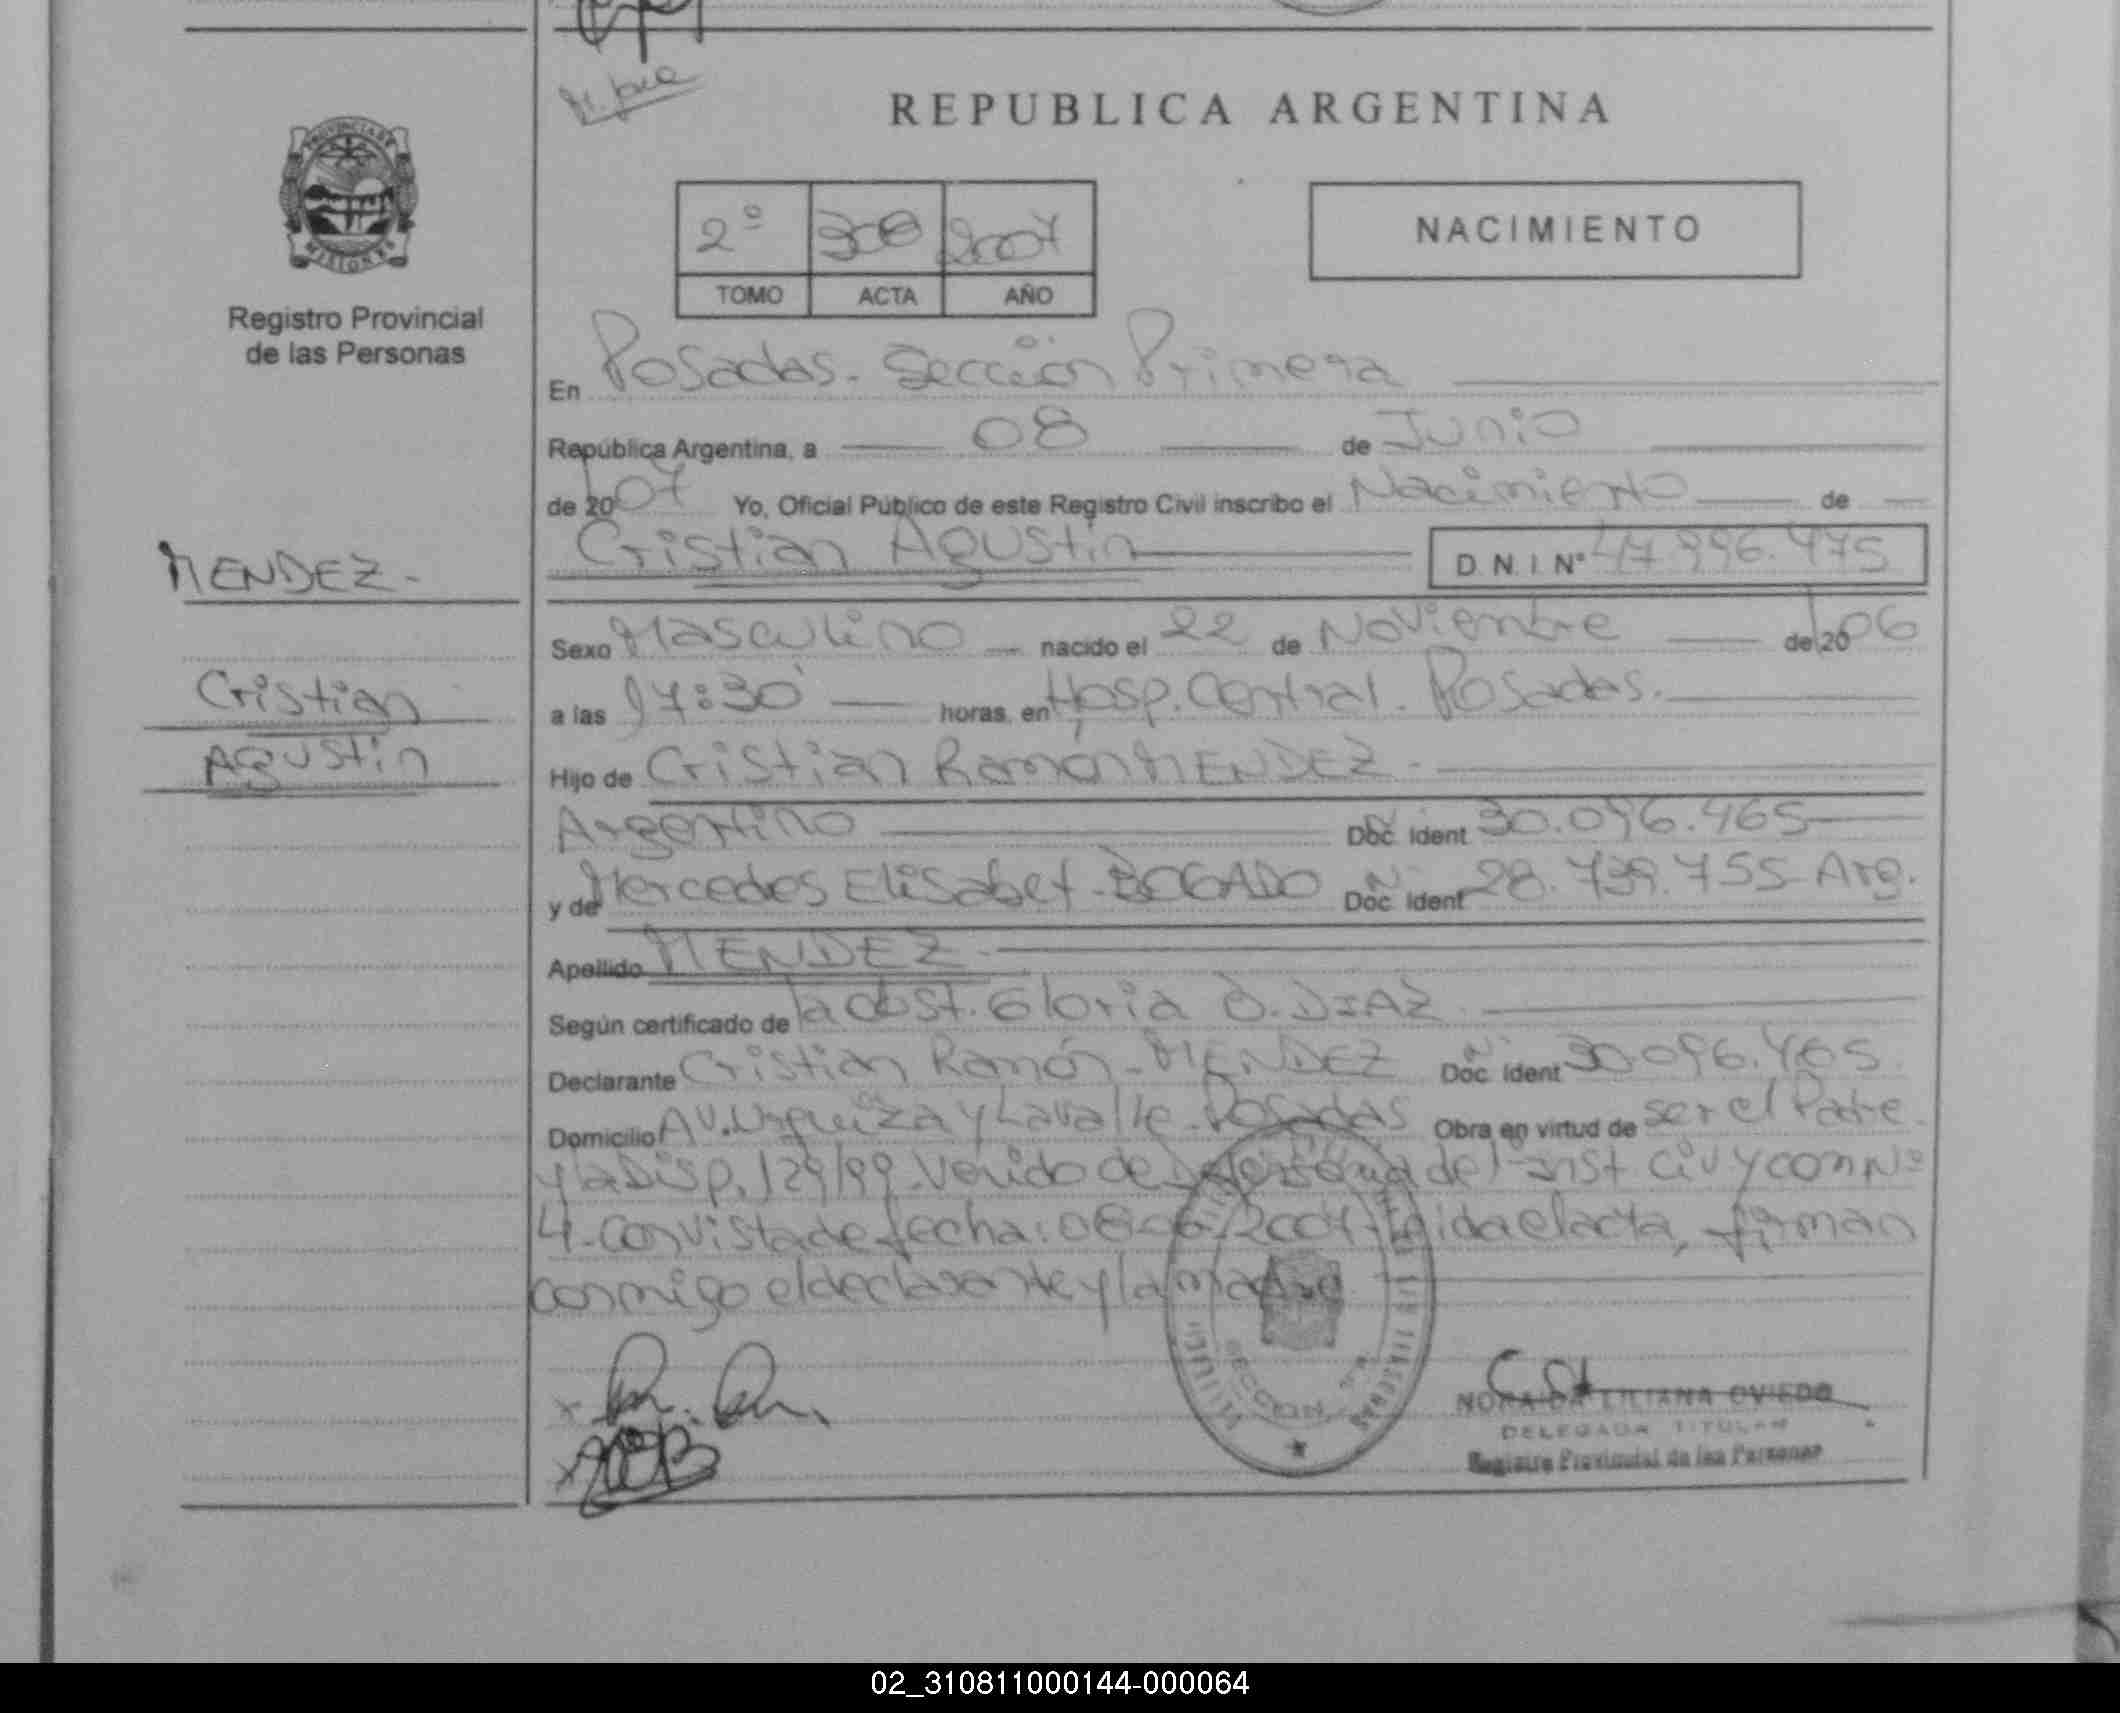 REPUBLICA ARGENTINA
PROVINCIA DE
MISIONES
Registro Provincial
de las Personas
2º 308 2007
TOMO ACTA AÑO
NACIMIENTO
En Posadas. Sección Primera
República Argentina, a 08 de Junio
de 2007 Yo, Oficial Público de este Registro Civil inscribo el Nacimiento de
Cristian Agustin
D.N.I Nº 47.996.475
MENDEZ.-
Cristian
Agustin
Sexo Masculino nacido el 22 de Noviembre de 2006
a las 17:30 horas, en Hosp. Central. Posadas.
Hijo de Cristian Ramón MENDEZ.
Argentino Doc. Ident 30.096.465
y de Mercedes Elisabet BOGADO Doc. Ident 28.739.755 Arg.
Apellido MENDEZ.
Según certificado de la obst. Gloria O. DIAZ
Declarante Cristian Ramón MENDEZ Doc. Ident 30.096.465.
Domicilio AV. Urquiza y Lavalle. Posadas Obra en virtud de ser el Padre
y la Disp. 129/99. Venido de Defensoria de Inst Civ y Com Nº
4. Con vista de fecha: 08-06-2007. Leida el acta, firman
conmigo el declarante y la madre
SECCION
NORMA LILIANA OVIEDO
DELEGADA TITULAR
Registro Provincial de las Personas
02_310811000144-000064